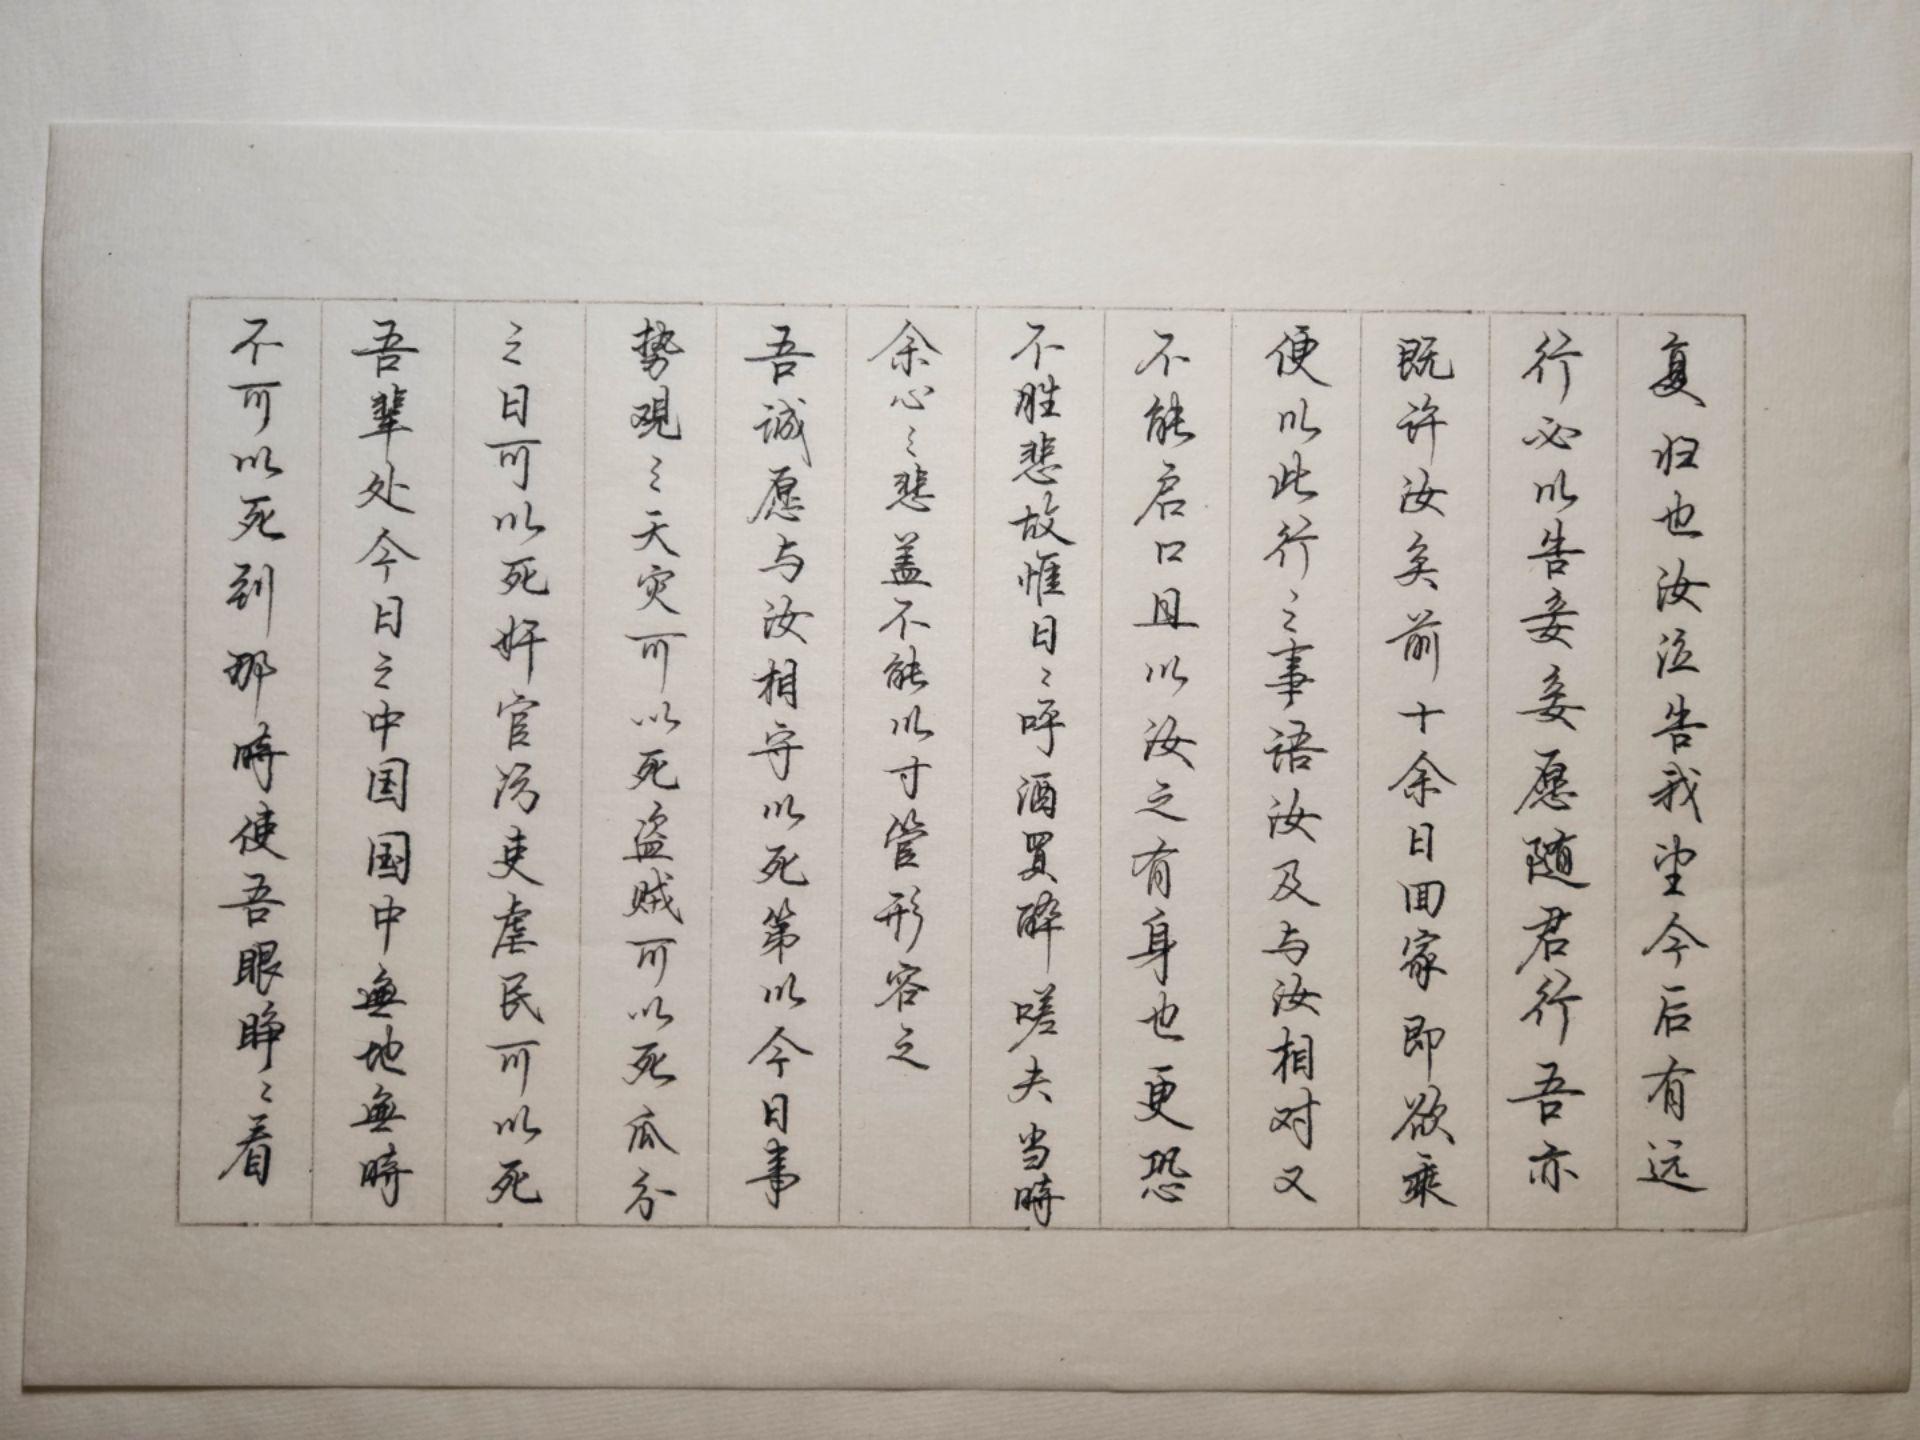 复归也汝泣告我望今后有远
行必以告妾妾愿随君行吾亦
既许汝矣前十余日回家即欲乘
便以此行之事语汝及与汝相对又
不能启口且以汝之有身也更恐
不胜悲故惟日〻呼酒买醉嗟夫当時
余心之悲盖不能以寸管形容之
吾诚愿与汝相守以死第以今日事
势观之天灾可以死盗贼可以死瓜分
之日可以死奸官污吏虐民可以死
吾辈处今日之中国国中無地無時
不可以死到那時使吾眼睁〻看